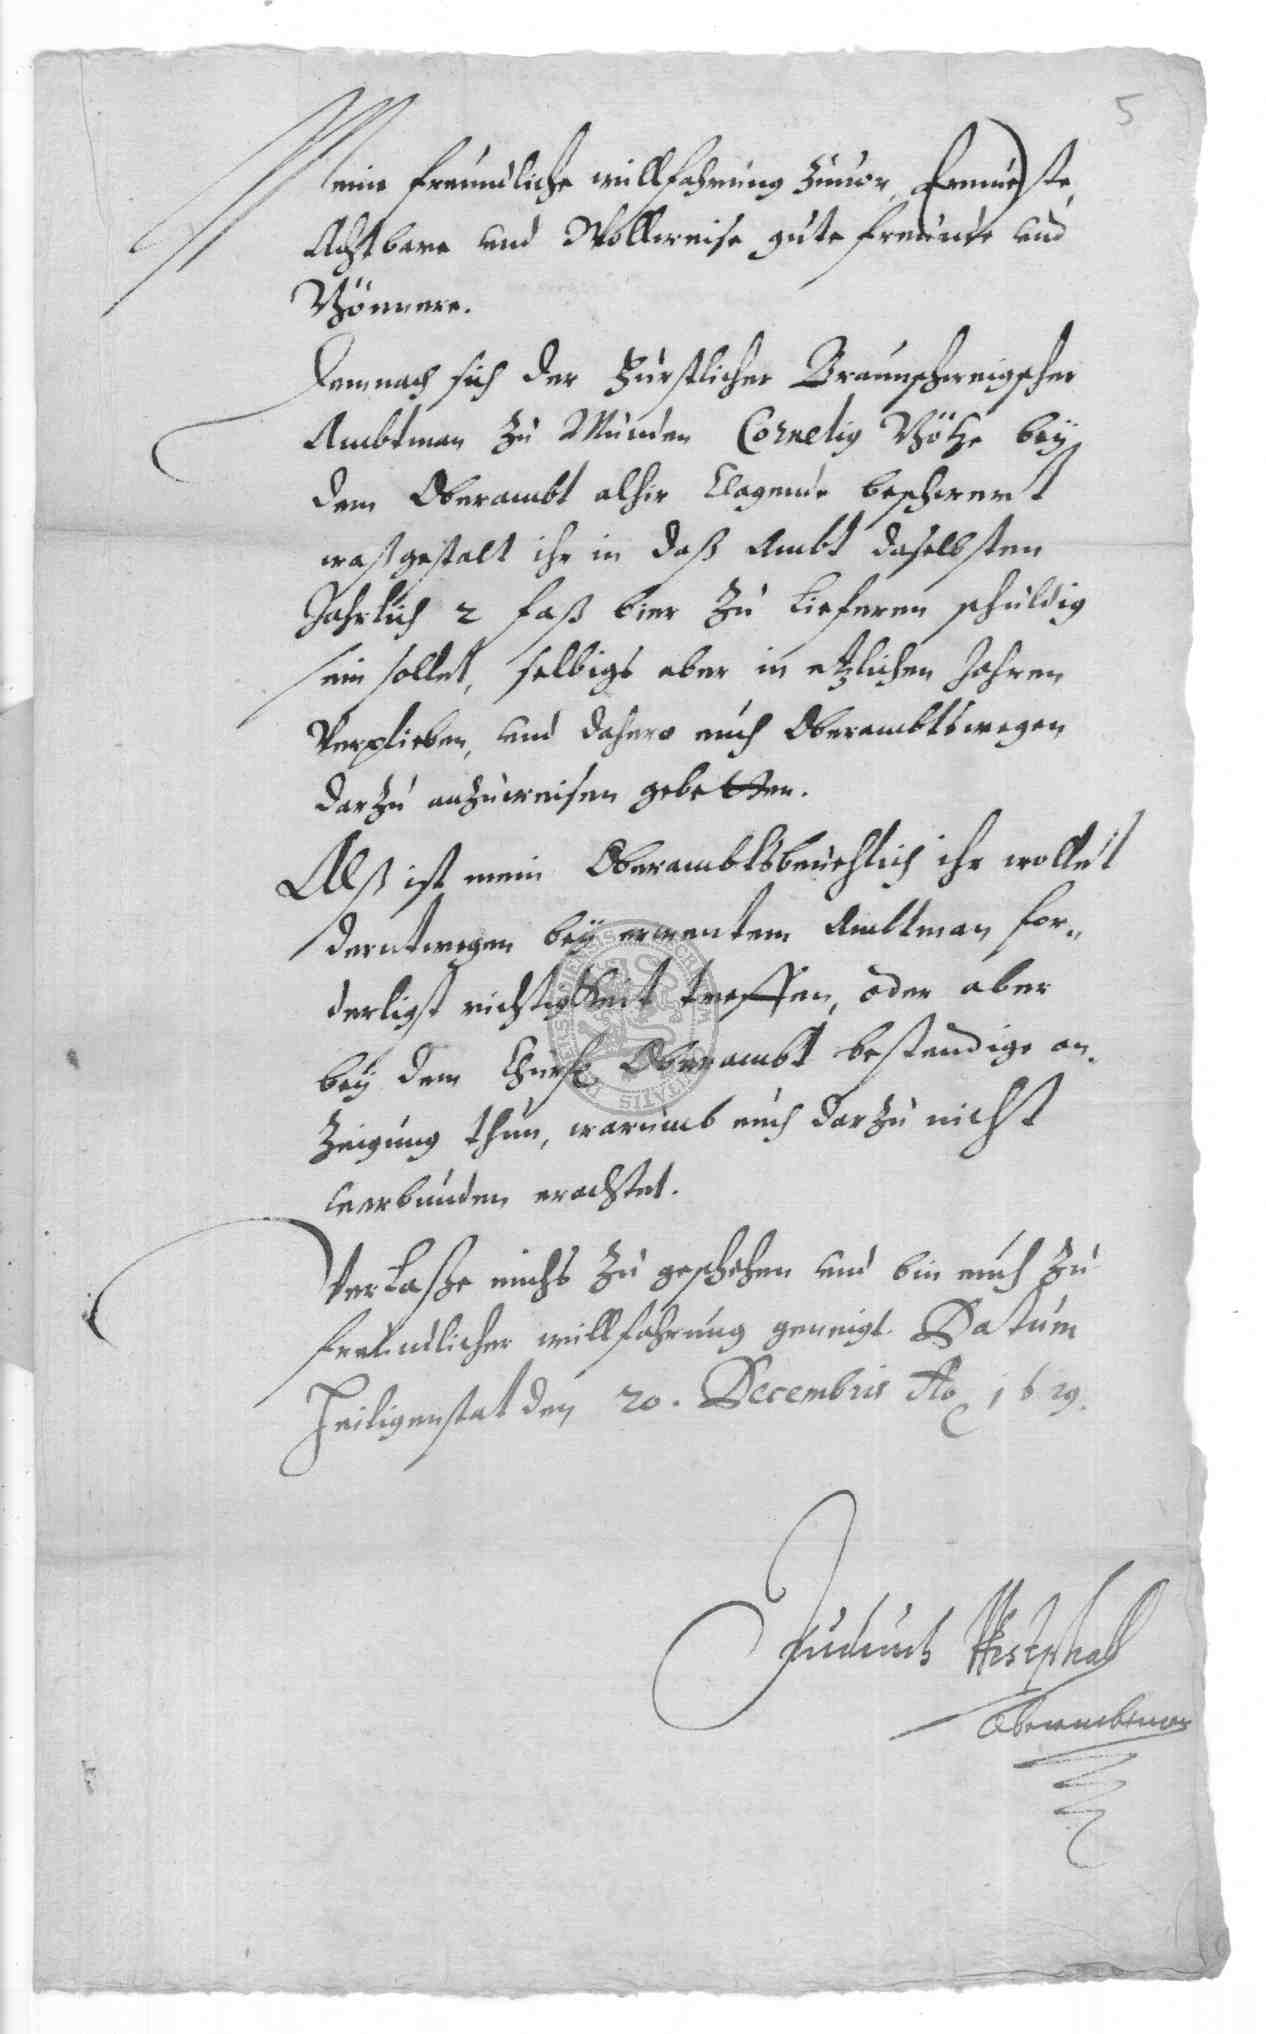 5
Meine freundliche willfahrung zuuor, Ernueste,
Achtbare und Wollweise gute freunde und
Gönnere.
Demnach sich der Fürstlicher Braunschweigscher
Ambtman zu Munden Cornelig Götze beÿ
dem Oberambt alhir klagende beschwert
waßgestalt ihr in daß Ambt daselbsten
Jahrlich 2 faß bier zu lieferen schuldig
sein sollet, selbigs aber in etzlichen Jahren
Verplieben, und dahero euch Oberambtswegen
darzu anzuweisen gebetten.
Alß ist mein Oberambtsbeuehlich ihr wollet
derntwegen beÿ erwentem Ambtman for„
derligst richtigkeit treffen, oder aber
beÿ dem Churf. Oberambt bestendige an„
zeigung thun, warumb euch darzu nicht
verbunden erachtet.
Verlaße michs zu geschehen und bin euch zu
freundlicher willfahrung geneigt. Datum
Heiligenstat den 20. Decembris Ao 1629.
Westphal
Oberambtman